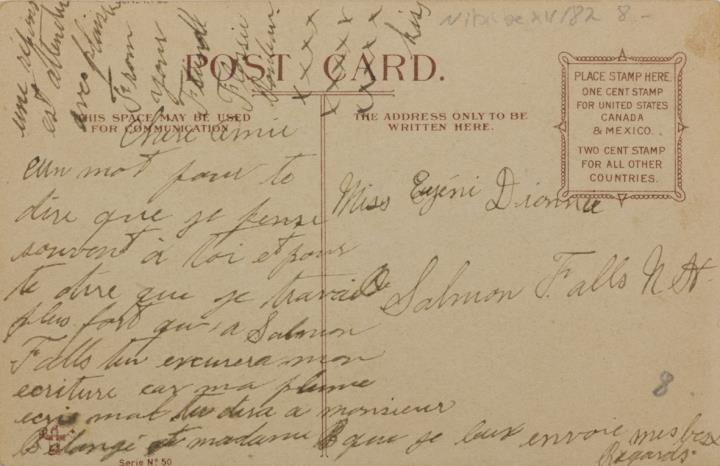 POST CARD.
THIS SPACE MAY BE USED
FOR COMMUNICATION
THE ADDRESS ONLY TO BE
WRITTEN HERE.
PLACE STAMP HERE
ONE CENT STAMP
FOR UNITED STATES
CANADA
& MEXICO.
TWO CENT STAMP
FOR ALL OTHER
COUNTRIES.
Chere amie
un mot pour te
dire que je pense
souvent à toi et pour
te dire que je travaille
plus fort qu'a Salmon
Falls tu excusera mon
ecriture car ma plume
ecris mal tu dira a monsieur
Bélangé et madame B que je leux envoie mes bex
Regards.
une répons
est attendu
avec plaisir
From
your
Friend
Flossie
x x x x
x x x x x
x x x x
Miss Eujéni Dionne
Salmon Falls N H.
8
8
Serie No 50